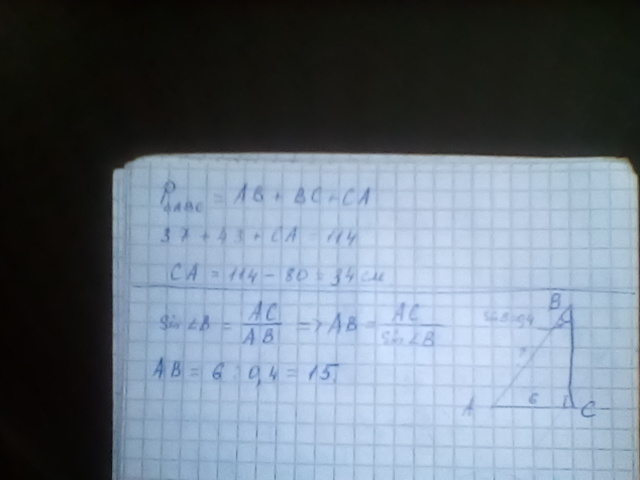 P△ABC = AB + BC + CA
37 + 43 + CA = 114
CA = 114 - 80 = 34 см
sin∠B = AC/AB => AB = AC/sin∠B
AB = 6 : 0,4 = 15
B
sinB=0,4
?
6
A
C